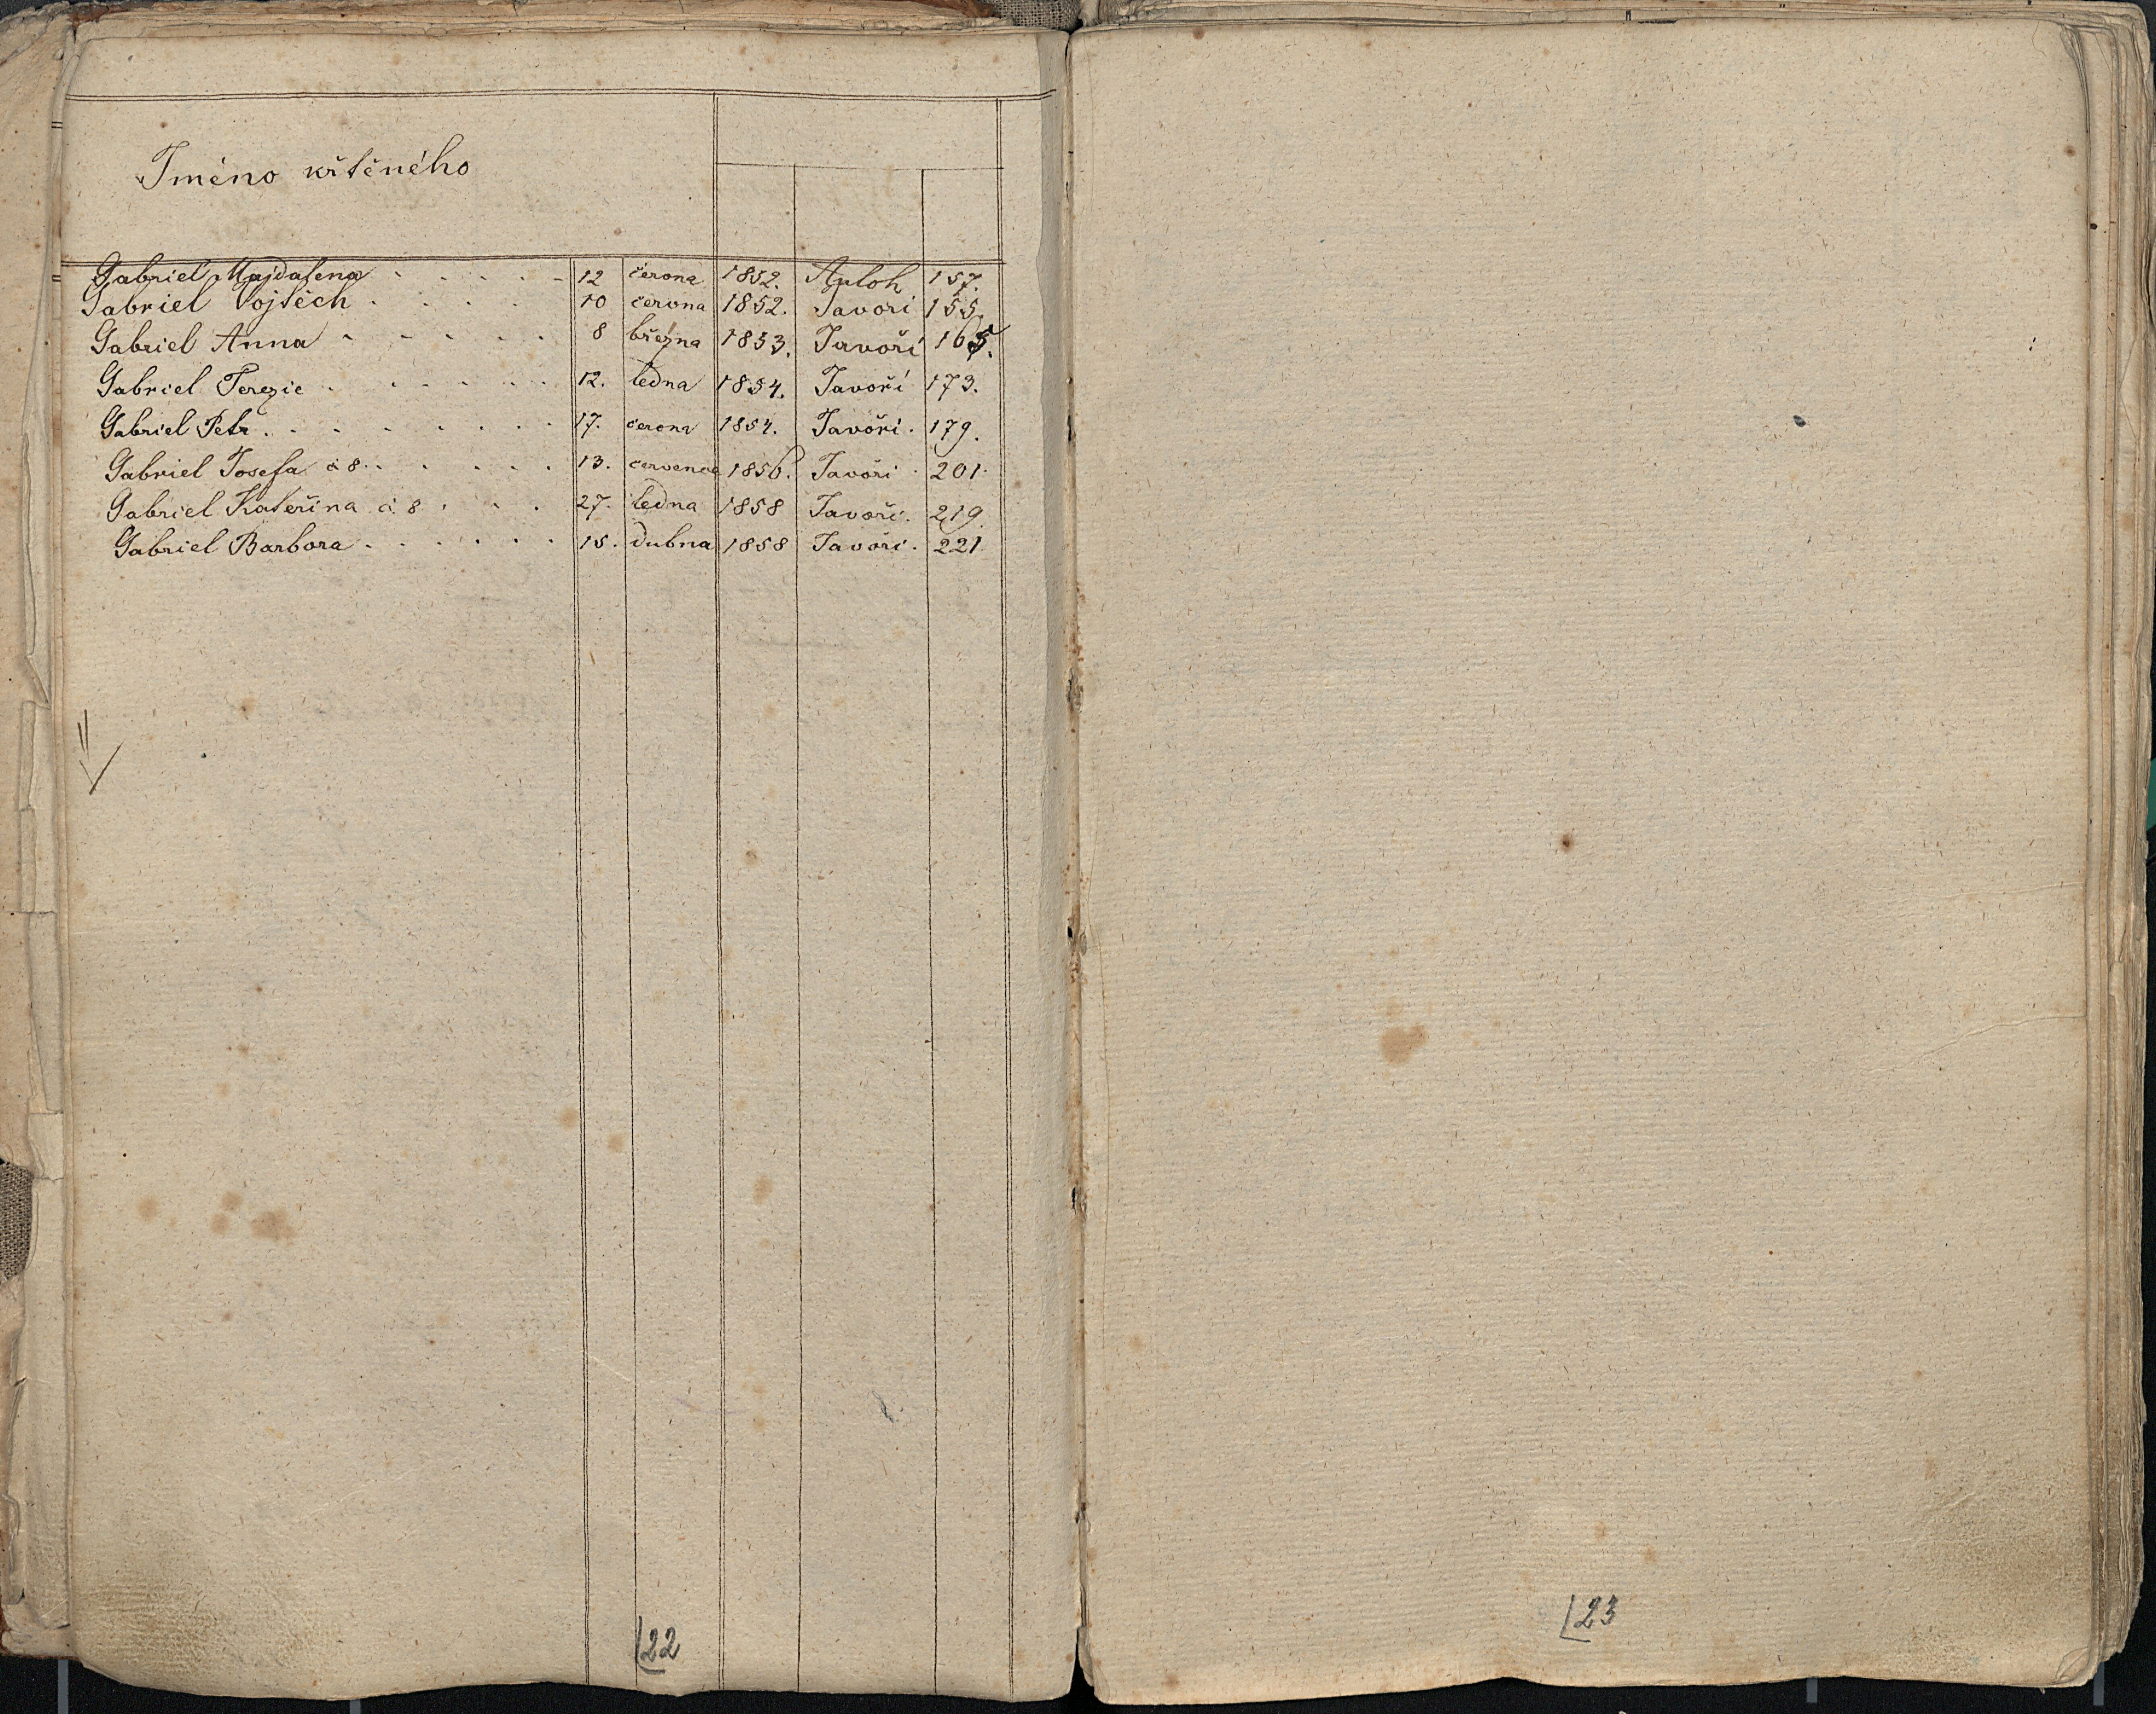 Jméno křtěného
Gabriel Majdalena . . . . . 12 června 1852. 157.
Gabriel Vojtěch . . . . 10 června 1852. Javoří 155.
Gabriel Anna . . . . . 8 března 1853. Javoří 165.
Gabriel Terezie . . . . . . 12. ledna 1854. Javoří 173.
Gabriel Petr . . . . . . . . 17. června 1854. Javoří. 179.
Gabriel Josefa č 8 . . . . . 13. července 1856. Javoří . 201.
Gabriel Kateřina č. 8 . . . 27. ledna 1858 Javoří. 219.
Gabriel Barbora . . . . . . 15. dubna 1858 Javoří. 221.
22
23